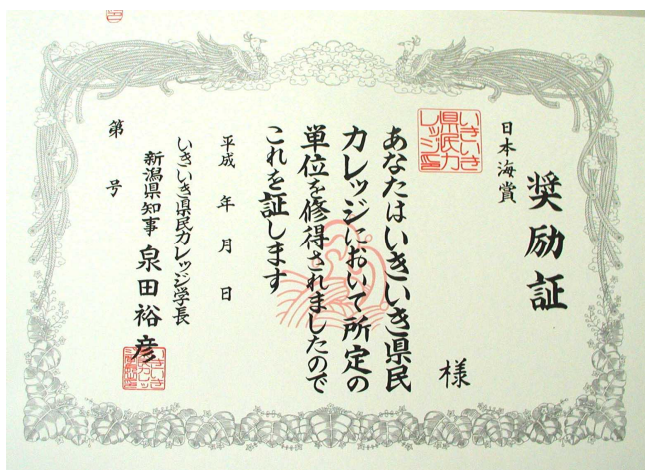 奨励証
日本海賞
様
いきいき
県民カ
レッジ印
あなたはいきいき県民
カレッジにおいて所定の
単位を修得されましたので
これを証します
平成 年 月 日
いきいき県民カレッジ学長
新潟県知事 泉田裕彦
第 号